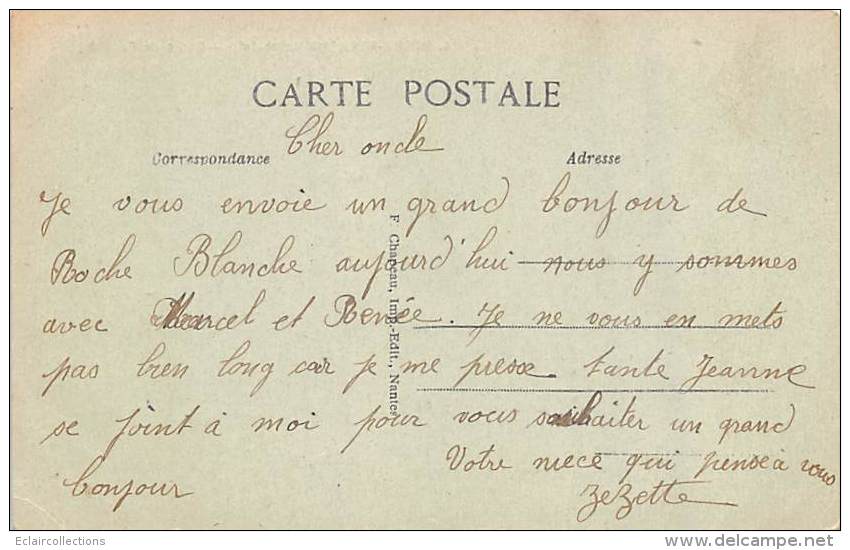 CARTE POSTALE
Correspondance
Adresse
Cher oncle
Je vous envoie un grand bonjour de
Roche Blanche aujourd'hui nous y sommes
avec Marcel et Renée. Je ne vous en mets
pas bien long car je me presse tante Jeanne
se joint à moi pour vous souhaiter un grand
bonjour
Votre niece qui pense à vous
Zezette
F. Chapeau, Imp.-Edit., Nantes
Eclaircollections
delcampe.net